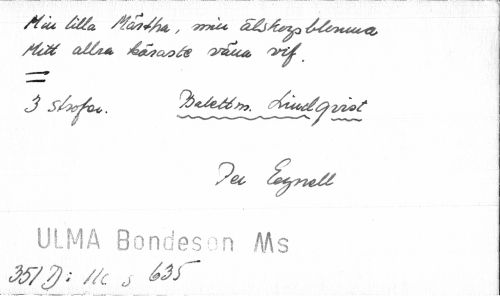 Min lilla Märtha, min älskogsblomma
Mitt allra käraste väna vif.
=
3 strofer. Balettm. Lindqvist
Per Egnell
ULMA Bondeson Ms
351 D: 11c s 635